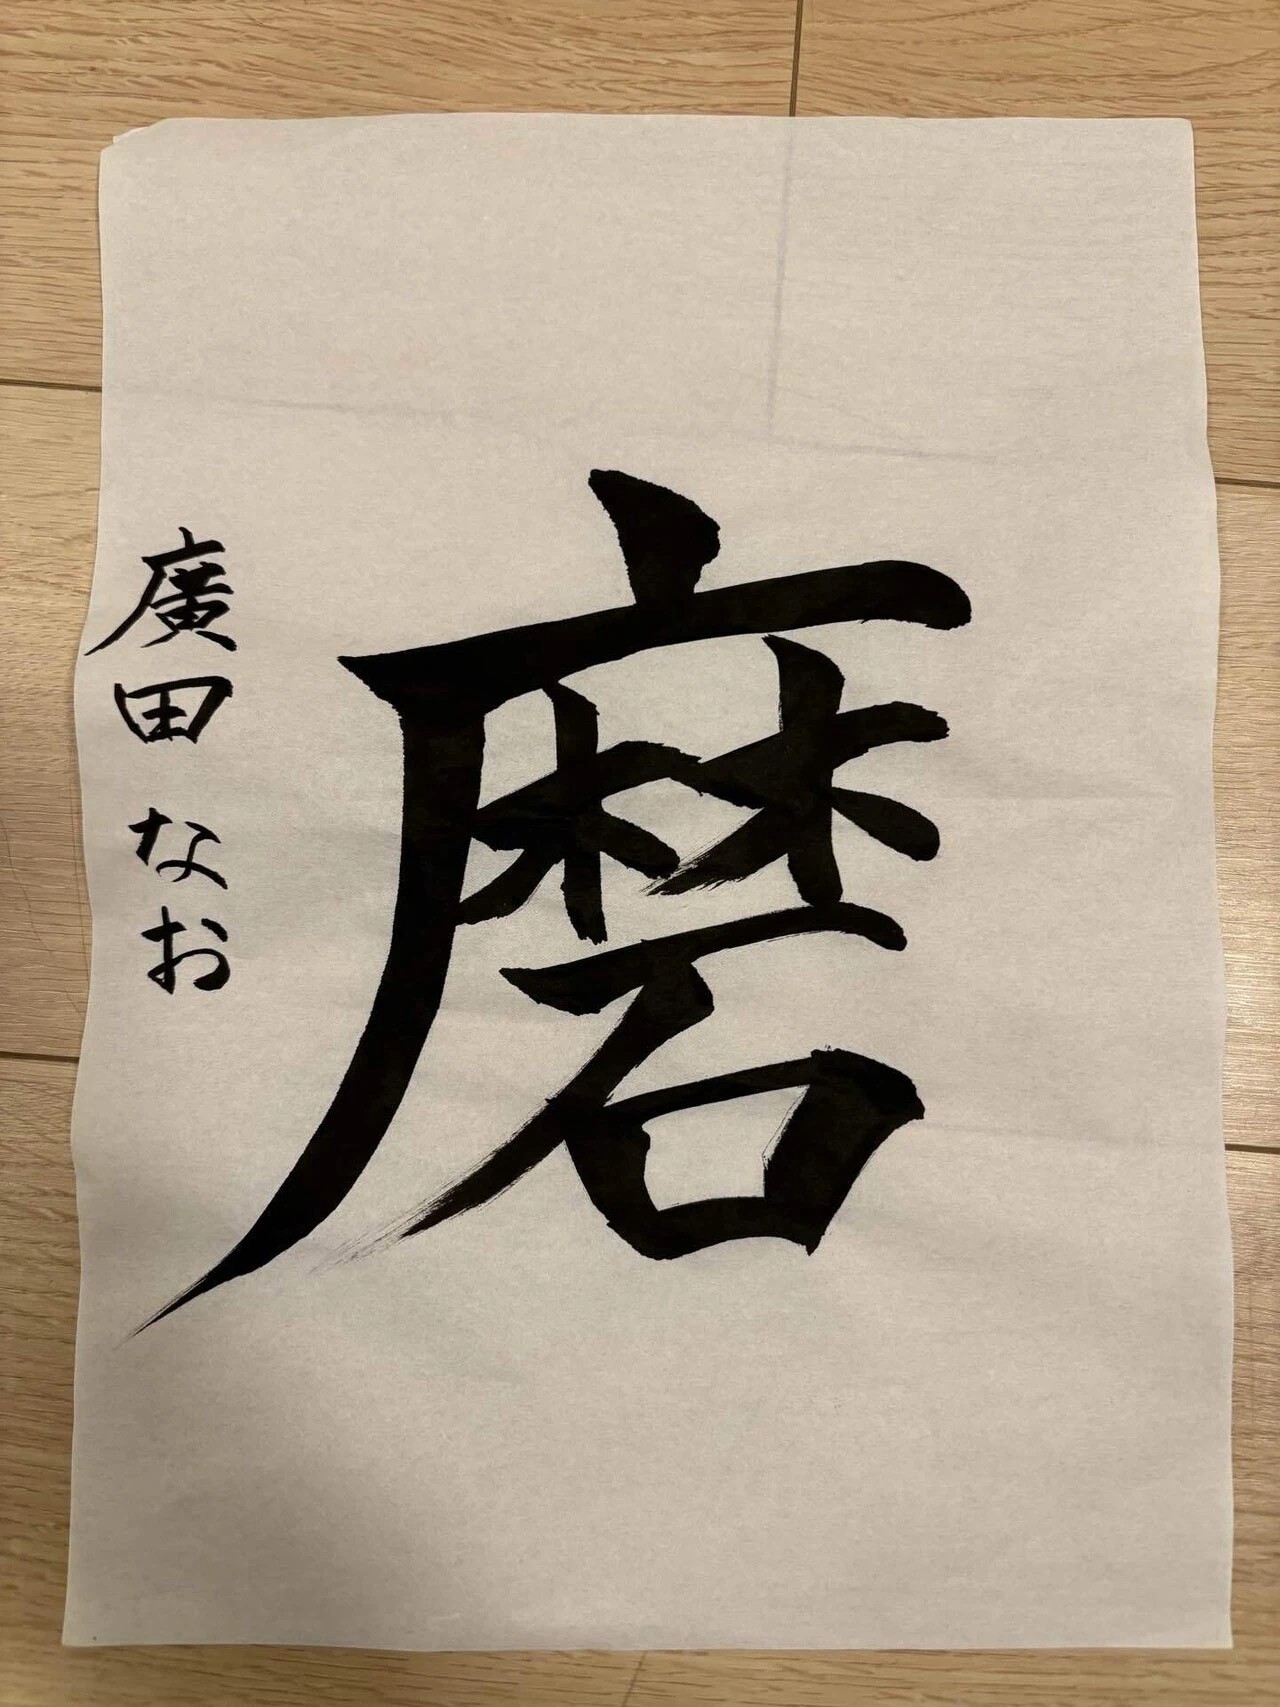 磨
廣田なお